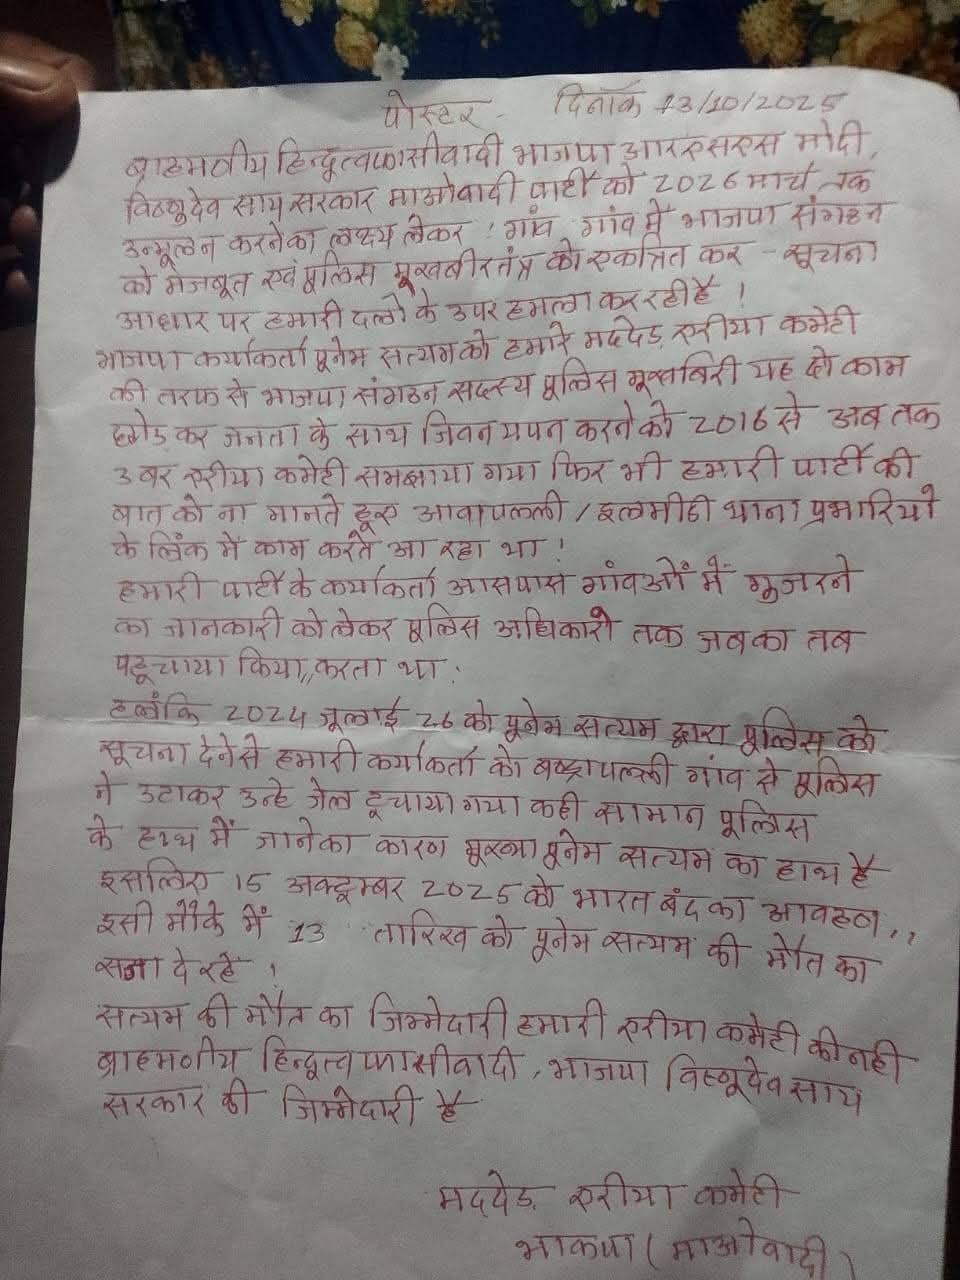 पोस्टर - दिनाँक 13/10/2025
ब्राहमणीय हिन्दुत्वफासीवादी भाजपा आरएसएस मोदी,
विष्णुदेव साय सरकार माओवादी पार्टी को 2026 मार्च तक
उन्मूलन करनेका लक्ष्य लेकर गांव गांव में भाजपा संगठन
को मजबूत एवं पुलिस मूखबीरतंत्र को एकत्रित कर - सूचना
आधार पर हमारी दलो के उपर हमला कर रही है !
भाजपा कार्यकर्ता पूनेम सत्यम को हमारे मददेड़ एरीया कमेटी
की तरफ से भाजपा संगठन सदस्य पूलिस मूखबिरी यह दो काम
छोड़ कर जनता के साथ जिवन यपन करने को 2016 से अब तक
3 बर एरीया कमेटी समझाया गया फिर भी हमारी पार्टी की
बात को ना मानते हूए आवापल्ली / इलमीडी थाना प्रभारियो
के लिंक में काम करते आ रहा था !
हमारी पार्टी के कार्यकर्ता आसपास गांवओं में गूजरने
का जानकारी को लेकर पूलिस अधिकारी तक जबका तब
पहूचाया किया,, करता था :
हलंकि 2024 जूलाई 26 को पूनेम सत्यम द्वारा पूलिस को
सूचना देने से हमारी कर्याकर्ता को गांव से पूलिस
ने उठाकर उन्हे जेल हूचाया गया कही सामान पूलिस
के हाथ में जानेका कारण मूख्या पूनेम सत्यम का हाथ है
इसलिए 15 अक्टूम्बर 2025 को भारत बंद का आवहण,,
इसी मौके में 13 तारिख को पूनेम सत्यम की मौत का
सजा दे रहे !
सत्यम की मौत का जिम्मेदारी हमारी एरीया कमेटी की नही
ब्राहमणीय हिन्दूत्व फासीवादी, भाजपा विष्णूदेव साय
सरकार की जिम्मेदारी है
मददेड़ एरीया कमेटी
भाकपा (माओवादी)